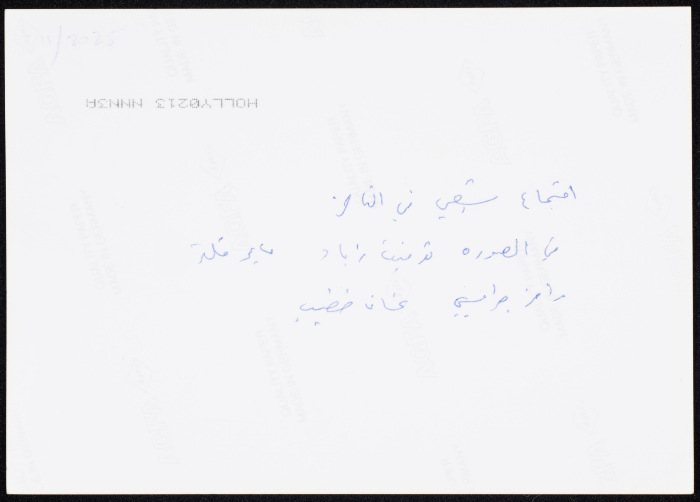 1/2025
HOLLY0213 NNN3A
اجتماع شعبي في الناصرة
في الصورة توفيق زياد
رامز جرايسي غسان خطيب